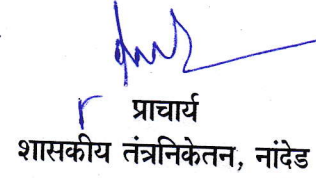 प्राचार्य
शासकीय तंत्रनिकेतन, नांदेड